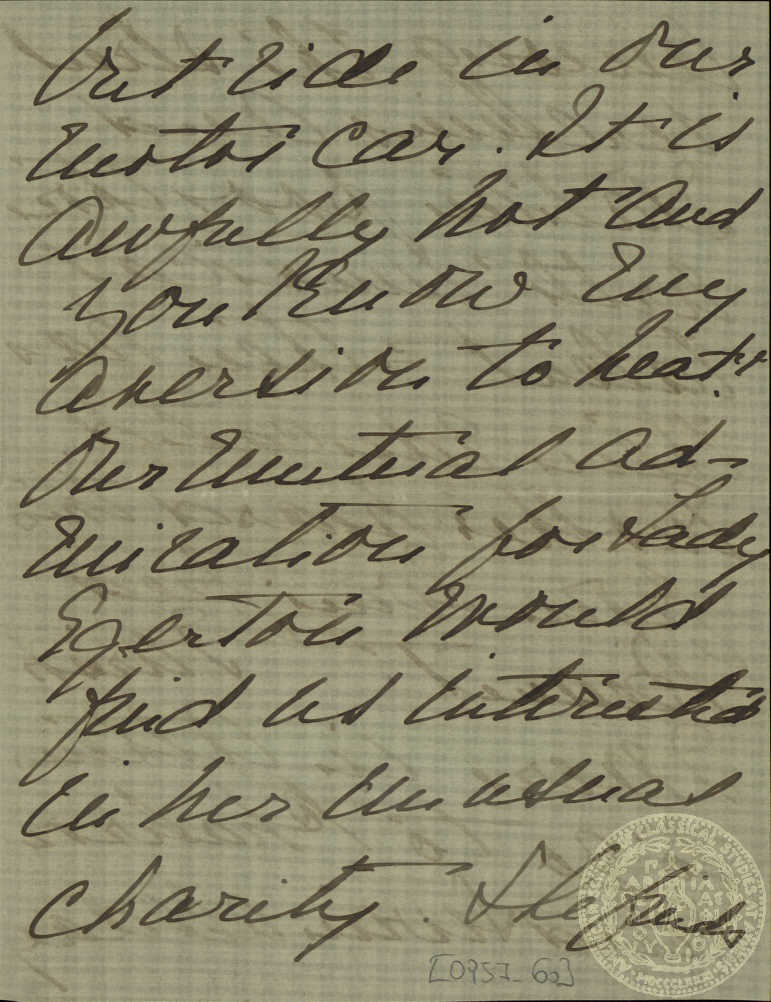 but ride in our
motor car. It is
awfully hot and
you know my
aversion to heat.
Our mutual ad-
miration for Lady
Egerton would
find us interested
in her unusual
charity. She finds
[0957_60]
CLASSICAL STUDIES